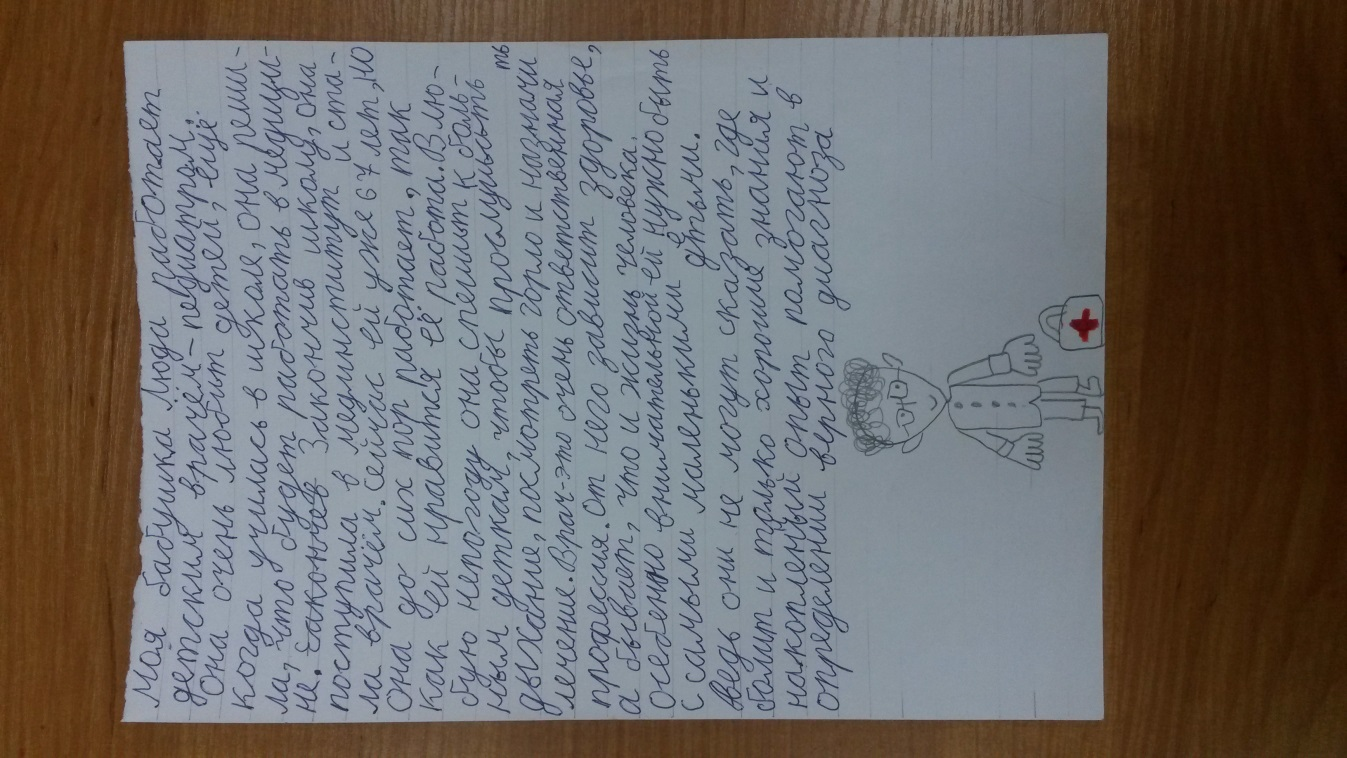 Моя бабушка Люда работает
детским врачём - педиатром.
Она очень любит детей, ещё
когда училась в школе, она реши-
ла, что будет работать в медици-
не. Закончив школу, она
поступила в мединститут и ста-
ла врачём. Сейчас ей уже 67 лет, но
она до сих пор работает, так
как ей нравится её работа. В лю-
бую непогоду она спешит к боль-
ным деткам, чтобы прослушать
дыхание, посмотреть горло и назначить
лечение. Врач-это очень ответственная
профессия. От него зависит здоровье,
а бывает, что и жизнь человека.
Особенно внимательной ей нужно быть
с самыми маленькими детьми.
ведь они не могут сказать, где
болит и только хорошие знания и
накопленый опыт помогают в
определении верного диагноза